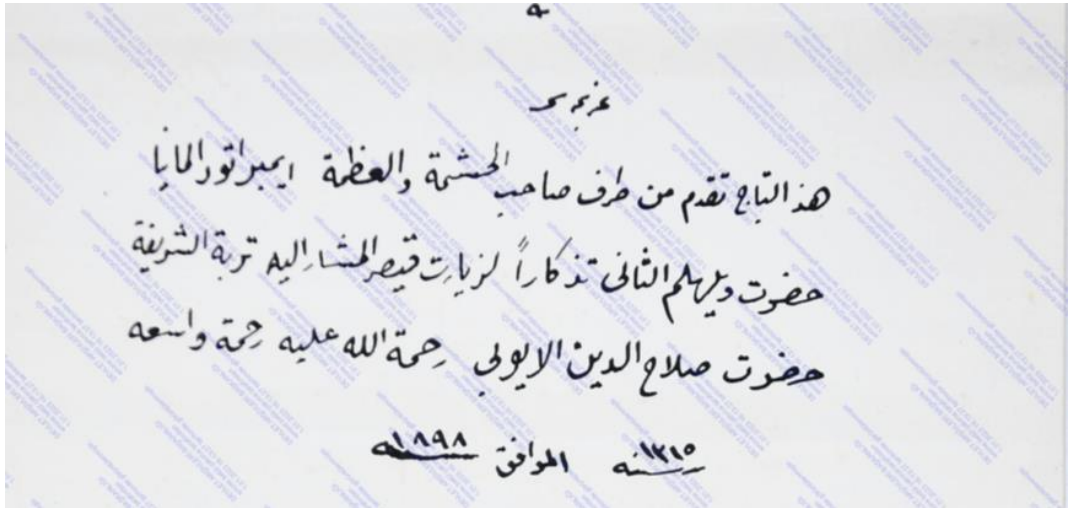 عربجه سى
هذ التاج تقدم من طرف صاحب الحشمة والعظمة ايمبراتور المانيا
حضرت ويلهلم الثانى تذكاراً لزيارت قيصر المشار اليه تربة الشريفة
حضرت صلاح الدين الايوبي رحمة الله عليه رحمة واسعه
سنه ١٣١٥ الموافق سنه ١٨٩٨